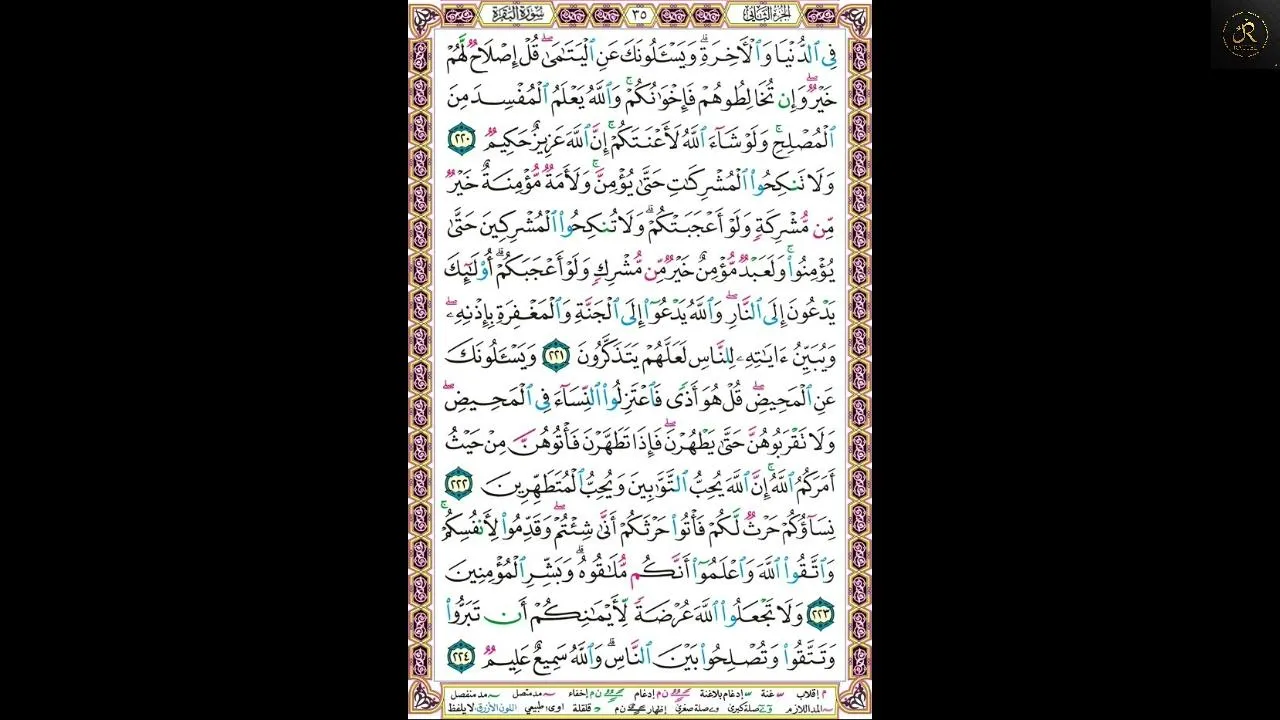 الجزء الثاني ٣٥ سورة البقرة
فِى ٱلدُّنْيَا وَٱلْأَخِرَةِ ۗ وَيَسْـَٔلُونَكَ عَنِ ٱلْيَتَـٰمَىٰ ۖ قُلْ إِصْلَاحٌ لَّهُمْ
خَيْرٌ ۖ وَإِن تُخَالِطُوهُمْ فَإِخْوَٰنُكُمْ ۚ وَٱللَّهُ يَعْلَمُ ٱلْمُفْسِدَ مِنَ
ٱلْمُصْلِحِ ۚ وَلَوْ شَآءَ ٱللَّهُ لَأَعْنَتَكُمْ ۚ إِنَّ ٱللَّهَ عَزِيزٌ حَكِيمٌ ٢٢٠
وَلَا تَنكِحُوا۟ ٱلْمُشْرِكَـٰتِ حَتَّىٰ يُؤْمِنَّ ۚ وَلَأَمَةٌ مُّؤْمِنَةٌ خَيْرٌ
مِّن مُّشْرِكَةٍ وَلَوْ أَعْجَبَتْكُمْ ۗ وَلَا تُنكِحُوا۟ ٱلْمُشْرِكِينَ حَتَّىٰ
يُؤْمِنُوا۟ ۚ وَلَعَبْدٌ مُّؤْمِنٌ خَيْرٌ مِّن مُّشْرِكٍ وَلَوْ أَعْجَبَكُمْ ۗ أُو۟لَـٰٓئِكَ
يَدْعُونَ إِلَى ٱلنَّارِ ۖ وَٱللَّهُ يَدْعُوٓا۟ إِلَى ٱلْجَنَّةِ وَٱلْمَغْفِرَةِ بِإِذْنِهِۦ ۖ
وَيُبَيِّنُ ءَايَـٰتِهِۦ لِلنَّاسِ لَعَلَّهُمْ يَتَذَكَّرُونَ ٢٢١ وَيَسْـَٔلُونَكَ
عَنِ ٱلْمَحِيضِ ۖ قُلْ هُوَ أَذًى فَٱعْتَزِلُوا۟ ٱلنِّسَآءَ فِى ٱلْمَحِيضِ ۖ
وَلَا تَقْرَبُوهُنَّ حَتَّىٰ يَطْهُرْنَ ۖ فَإِذَا تَطَهَّرْنَ فَأْتُوهُنَّ مِنْ حَيْثُ
أَمَرَكُمُ ٱللَّهُ ۚ إِنَّ ٱللَّهَ يُحِبُّ ٱلتَّوَّٰبِينَ وَيُحِبُّ ٱلْمُتَطَهِّرِينَ ٢٢٢
نِسَآؤُكُمْ حَرْثٌ لَّكُمْ فَأْتُوا۟ حَرْثَكُمْ أَنَّىٰ شِئْتُمْ ۖ وَقَدِّمُوا۟ لِأَنفُسِكُمْ ۚ
وَٱتَّقُوا۟ ٱللَّهَ وَٱعْلَمُوٓا۟ أَنَّكُم مُّلَـٰقُوهُ ۗ وَبَشِّرِ ٱلْمُؤْمِنِينَ
٢٢٣ وَلَا تَجْعَلُوا۟ ٱللَّهَ عُرْضَةً لِّأَيْمَـٰنِكُمْ أَن تَبَرُّوا۟
وَتَتَّقُوا۟ وَتُصْلِحُوا۟ بَيْنَ ٱلنَّاسِ ۗ وَٱللَّهُ سَمِيعٌ عَلِيمٌ ٢٢٤
م إقلاب غنة إدغام بلاغنة ن م إدغام ن م إخفاء مد متصل مد منفصل
المد اللازم صلة كبرى صلة صغرى إظهار ن م قلقلة اوى طبيعي اللون الأزرق لا يلفظ